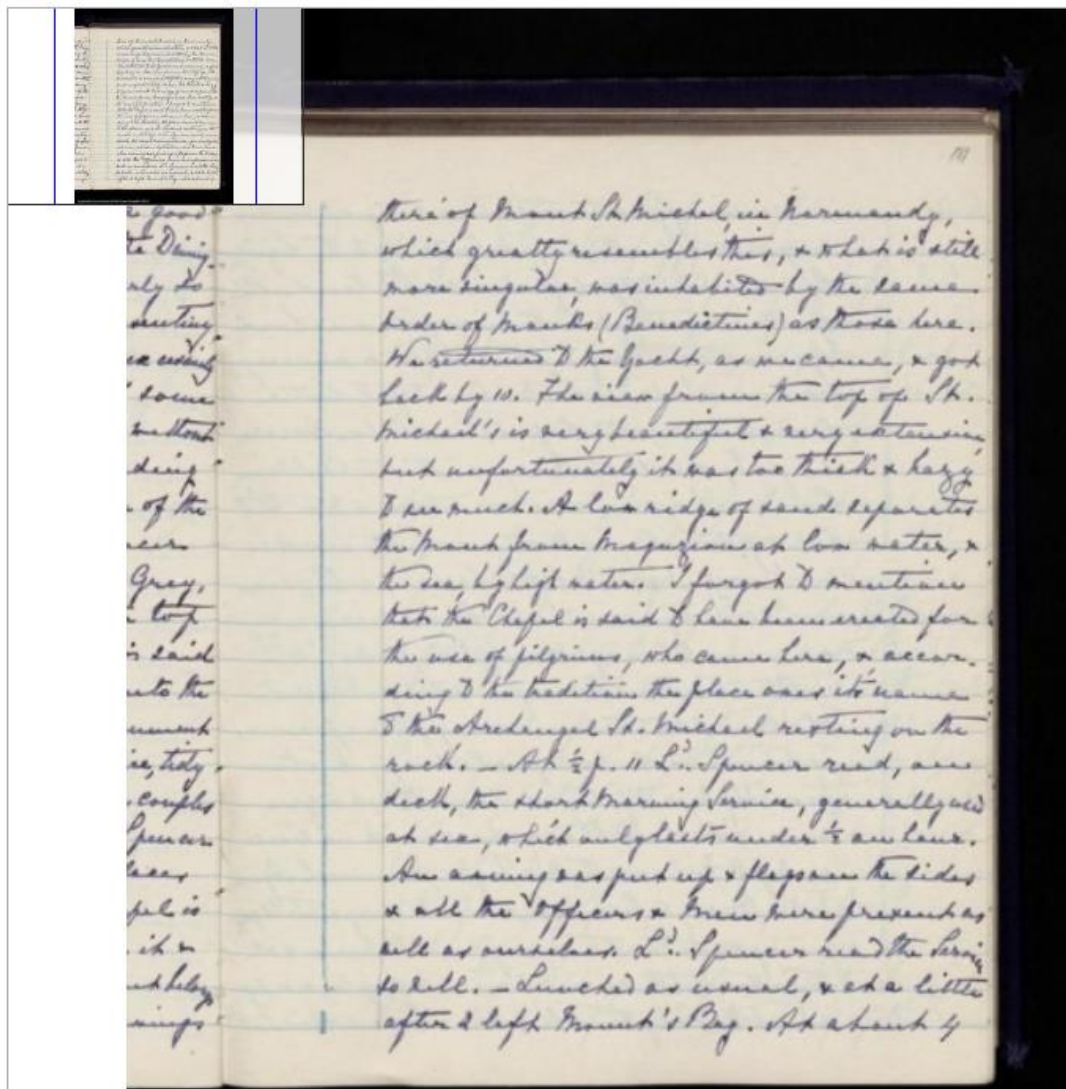 111
there of Mount St. Michel, in Normandy,
which greatly resembles this, & what is still
more singular, was inhabited by the same
Order of Monks (Benedictines) as those here.
We returned to the Yacht, as we came, & got
back by 10. The view from the top of St.
Michael's is very beautiful & very extensive,
but unfortunately it was too thick & hazy
to see much. A low ridge of sand separates
the Mount from Magazion at low water, &
the sea, by high water. I forgot to mention
that the Chapel is said to have been erected for
the use of pilgrims, who came here, & accor-
ding to the tradition the place owes its name
to the Archangel St. Michael resting on the
rock. — At ½ p. 11 Ld. Spencer read, on
deck, the short Morning Service, generally used
at sea, which only lasts under ½ an hour.
An awning was put up & flags on the sides
& all the Officers & Men were present as
well as ourselves. Ld. Spencer read the Service
so well. — Lunched as usual, & at a little
after 2 left Mount's Bay. At about 4
good
Dining
rly so
some
without
of the
Grey,
top
is said
into the
tidy
couples
Spencer
it &
belongs